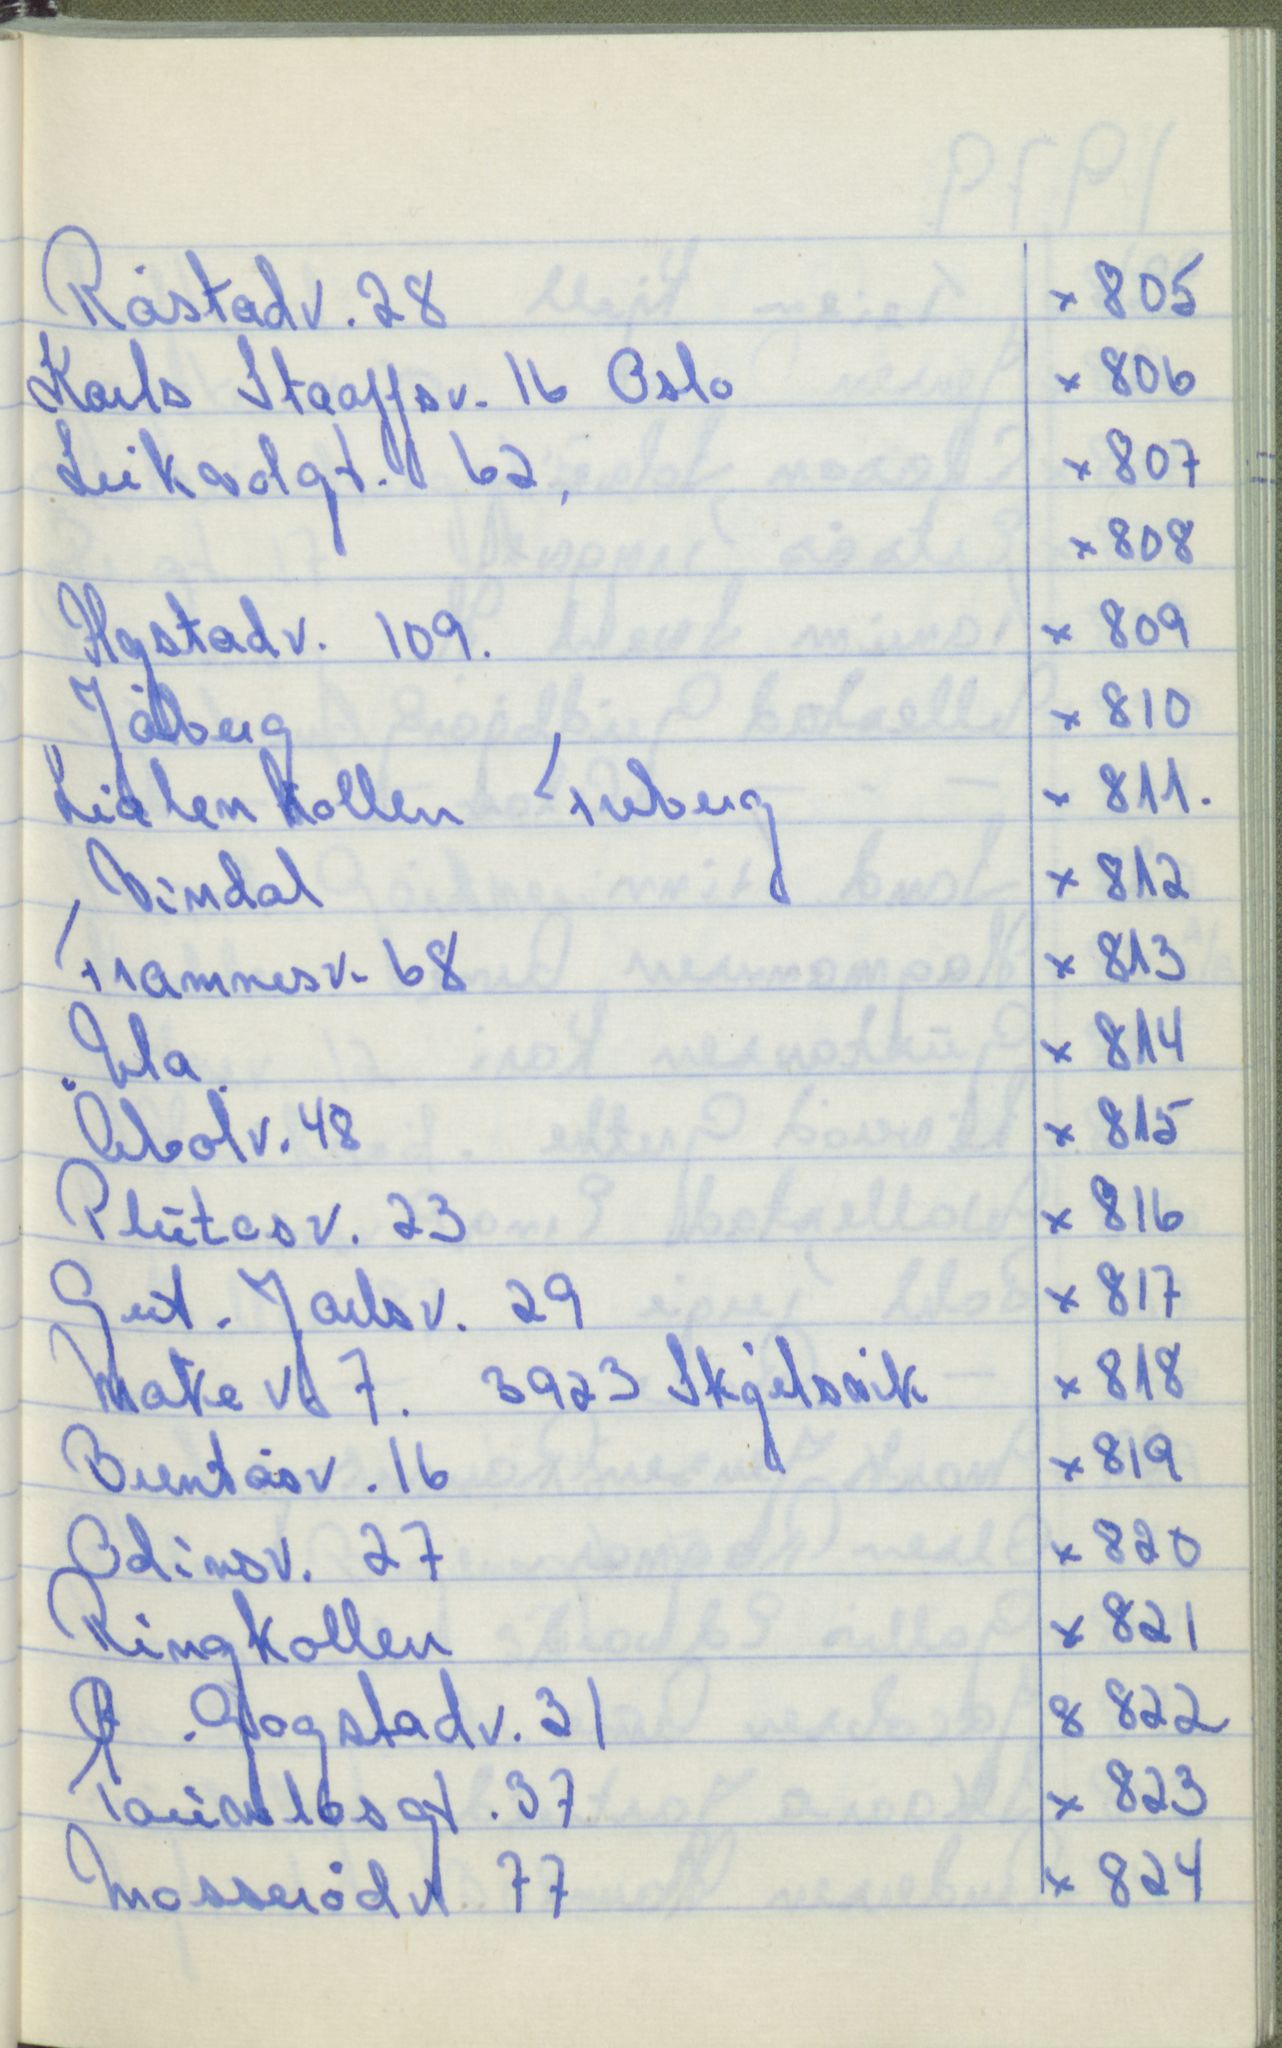 Råstadv. 28 x 805
Karls Staaffsv. 16 Oslo x 806
Leikvolgt. 62, x 807
x 808
Hystadv. 109. x 809
Jåberg x 810
Lialenkollen Treberg x 811.
Vindal x 812
Framnesv. 68 x 813
Ula x 814
Åbolv. 48 x 815
Plütosv. 23 x 816
Grit. Jarlsv. 29 x 817
Makev. 7. 3923 Skjelsvik x 818
Bentåsv. 16 x 819
Odinsv. 27 x 820
Ringkollen x 821
Gogstadv. 31 8 822
gt. 37 x 823
Mosserødv. 77 x 824